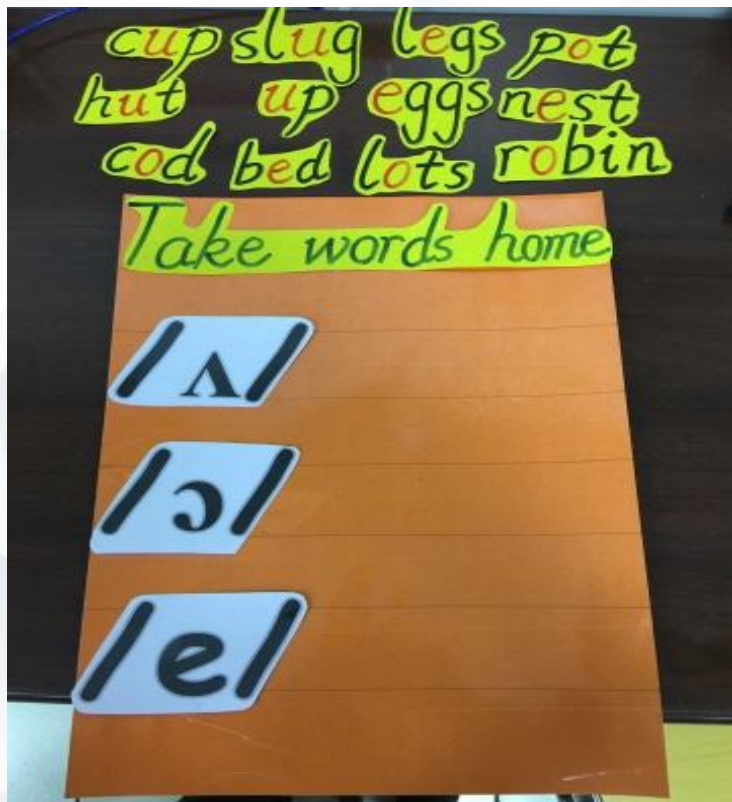 cup slug legs pot
hut up eggs nest
cod bed lots robin
Take words home
/ʌ/
/ɔ/
/e/